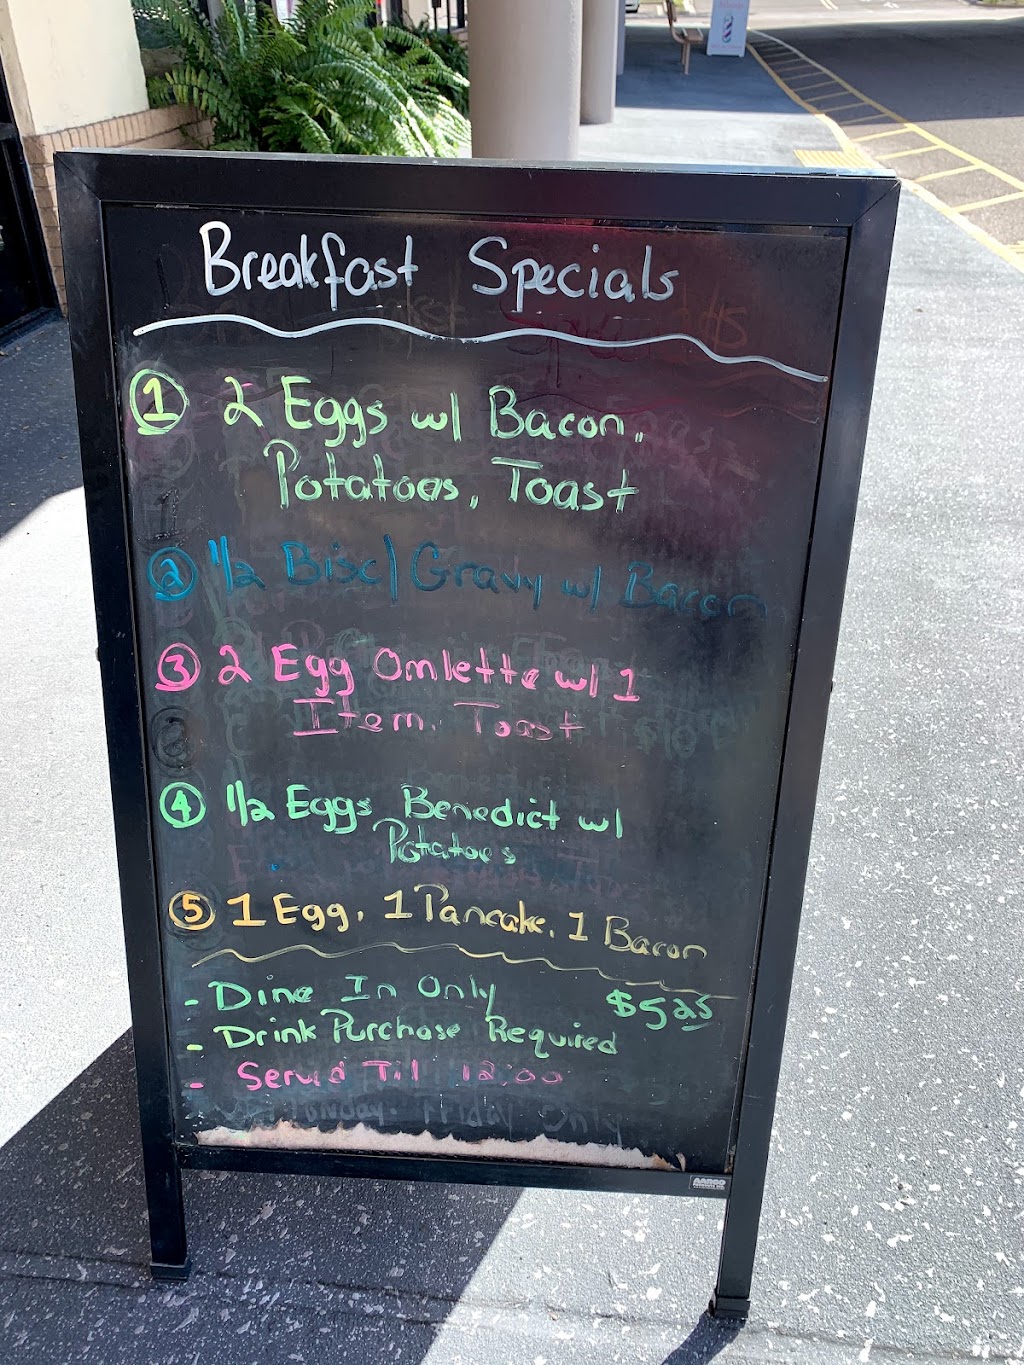 Breakfast Specials
1 2 Eggs w/ Bacon,
Potatoes, Toast
2 1/2 Bisc/Gravy w/ Bacon
3 2 Egg Omlette w/ 1
Item, Toast
4 1/2 Eggs Benedict w/
Potatoes
5 1 Egg, 1 Pancake, 1 Bacon
- Dine In Only
$5.25
- Drink Purchase Required
- Served Til 12:00
Monday. Friday Only